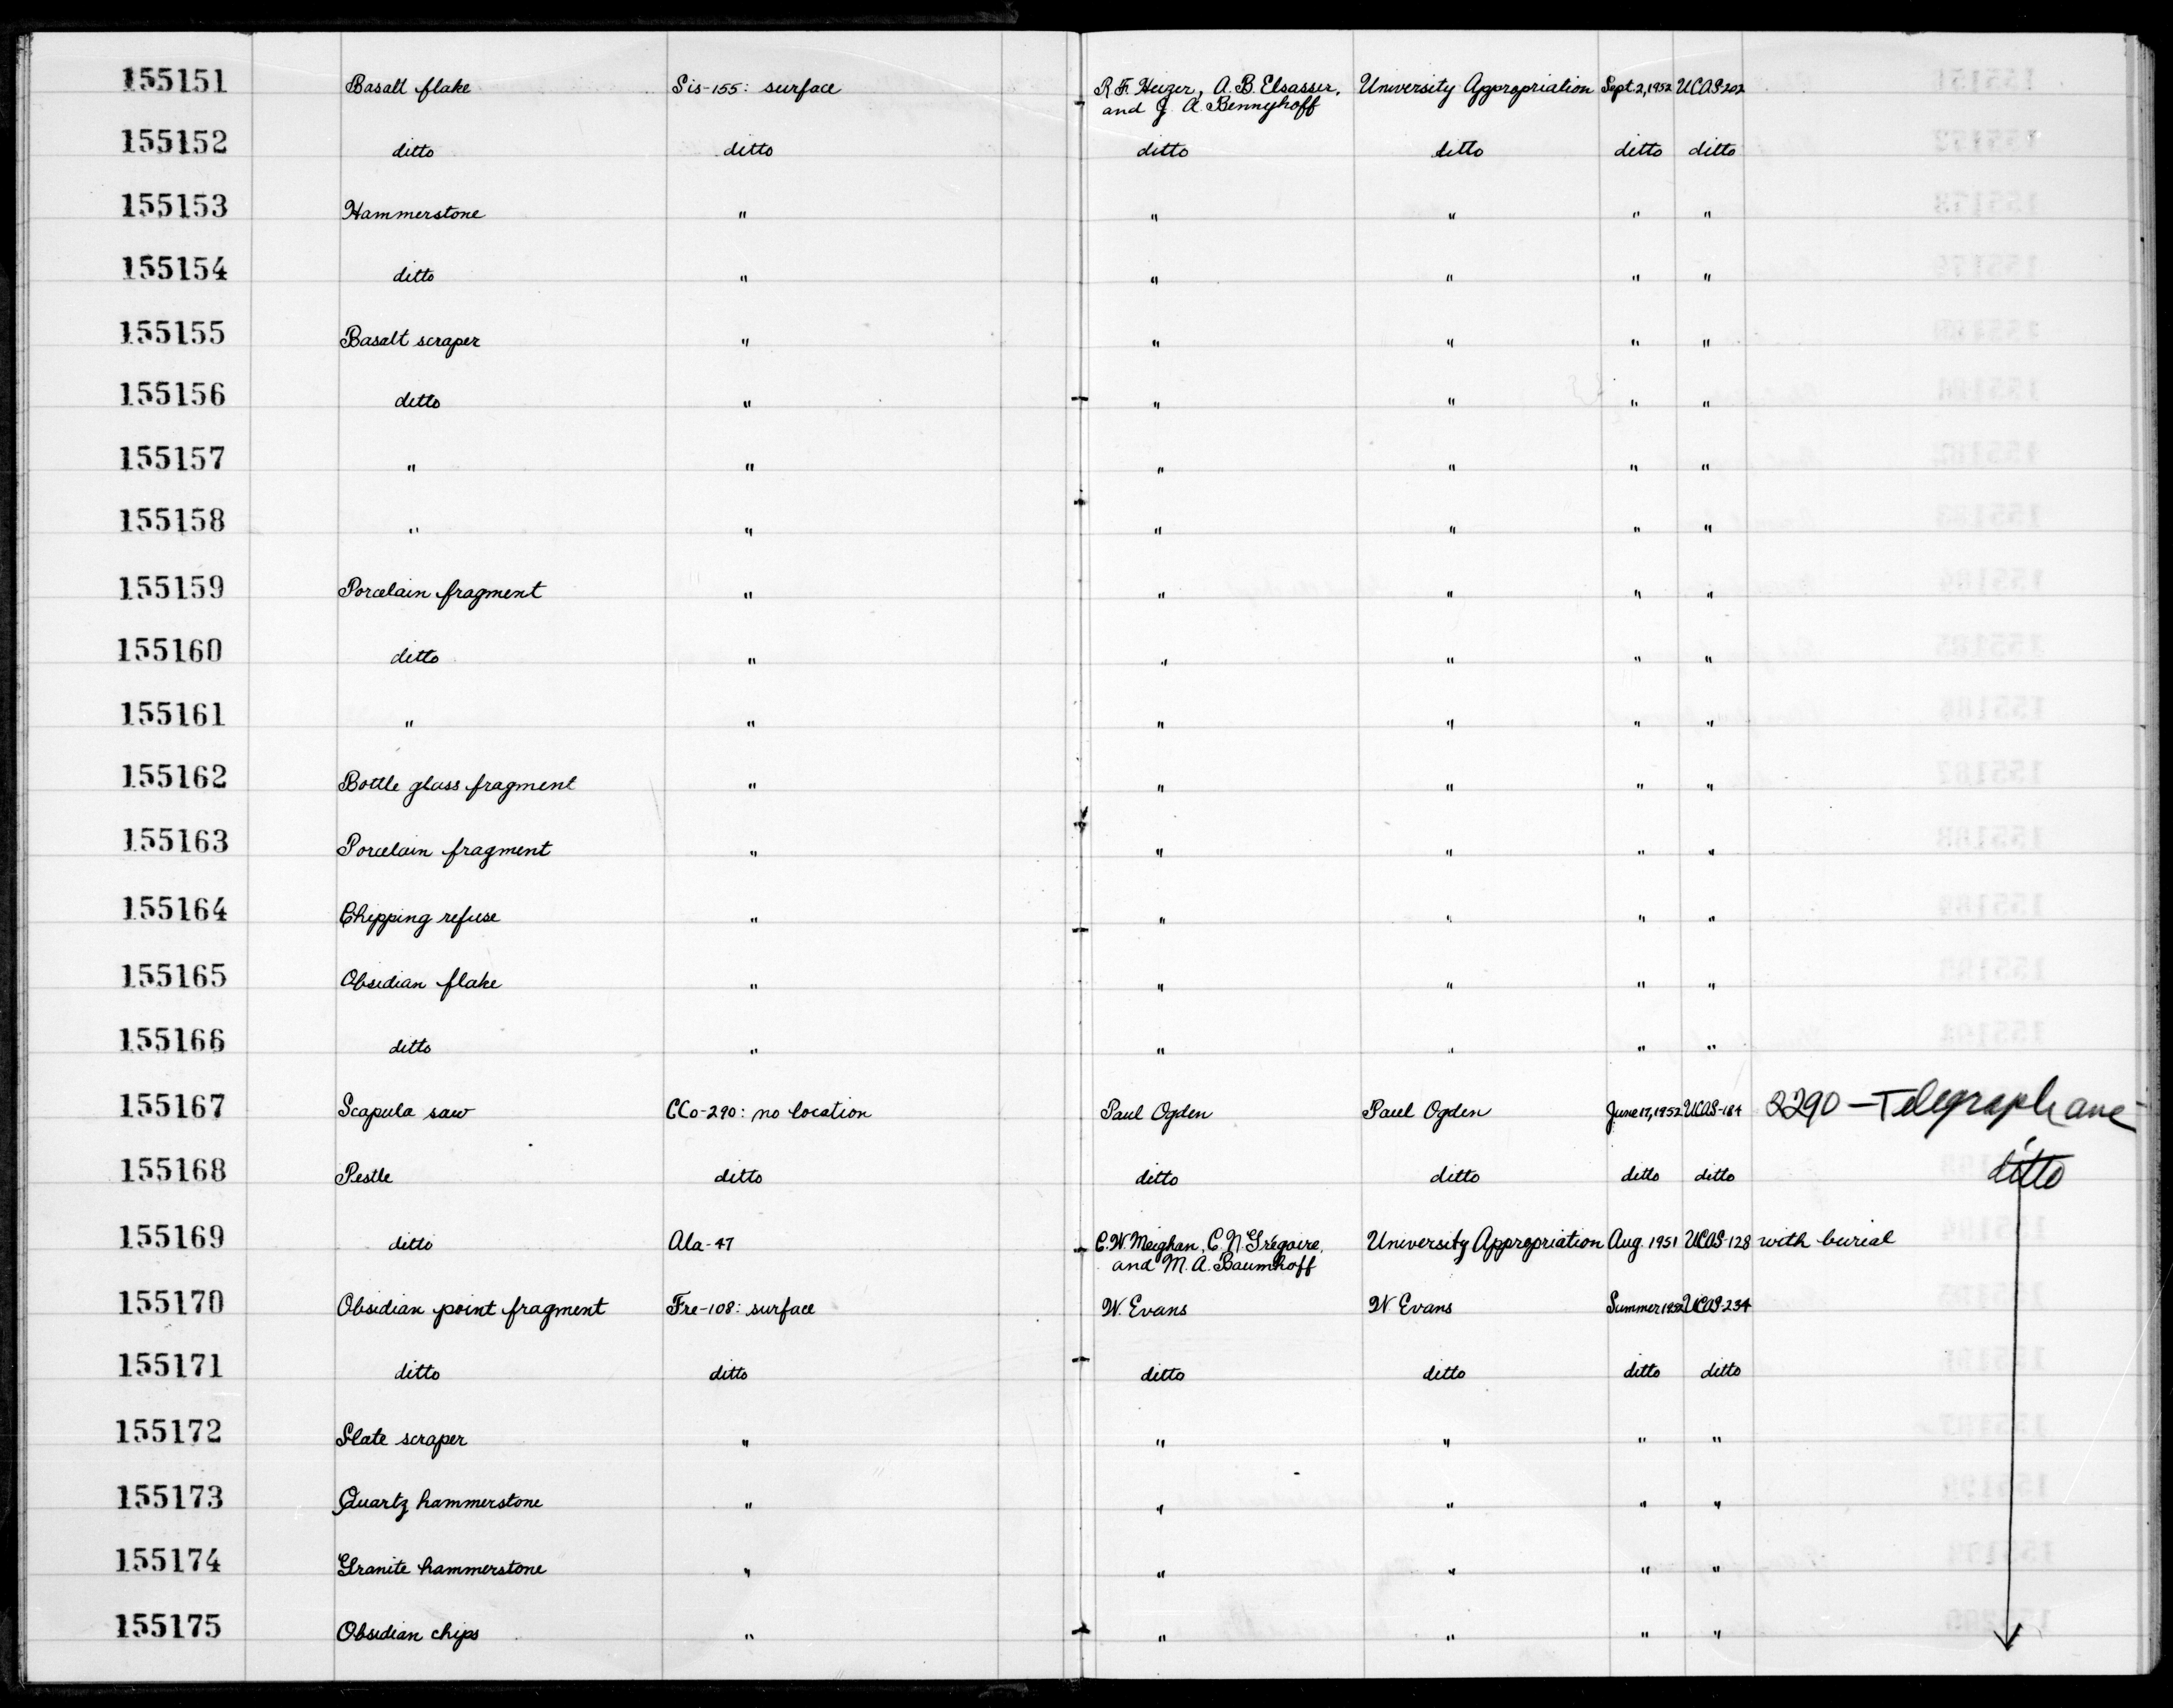 155151 Basalt flake Sis-155: surface R.F. Heizer, A.B. Elsasser, University Appropriation Sept. 2, 1952 UCAS-202
and J. A. Bennyhoff
155152 ditto ditto ditto ditto ditto ditto
155153 Hammerstone " " " " "
155154 ditto " " " " "
155155 Basalt scraper " " " " "
155156 ditto " " " " "
155157 " " " " " "
155158 " " " " " "
155159 Porcelain fragment " " " " "
155160 ditto " " " " "
155161 " " " " " "
155162 Bottle glass fragment " " " " "
155163 Porcelain fragment " " " " "
155164 Chipping refuse " " " " "
155165 Obsidian flake " " " " "
155166 ditto " " " " "
155167 Scapula saw CCo-290: no location Paul Ogden Paul Ogden June 17, 1952 UCAS-184 2290 - Telegraph ave
155168 Pestle ditto ditto ditto ditto ditto ditto
155169 ditto Ala-47 C.W. Meighan, C.N. Gregoire, University Appropriation Aug. 1951 UCAS-128 with burial
and M. A. Baumhoff
155170 Obsidian point fragment Fre-108: surface W. Evans W. Evans Summer 1952 UCAS-234
155171 ditto ditto ditto ditto ditto ditto
155172 Slate scraper " " " " "
155173 Quartz hammerstone " " " " "
155174 Granite hammerstone " " " " "
155175 Obsidian chips " " " " "